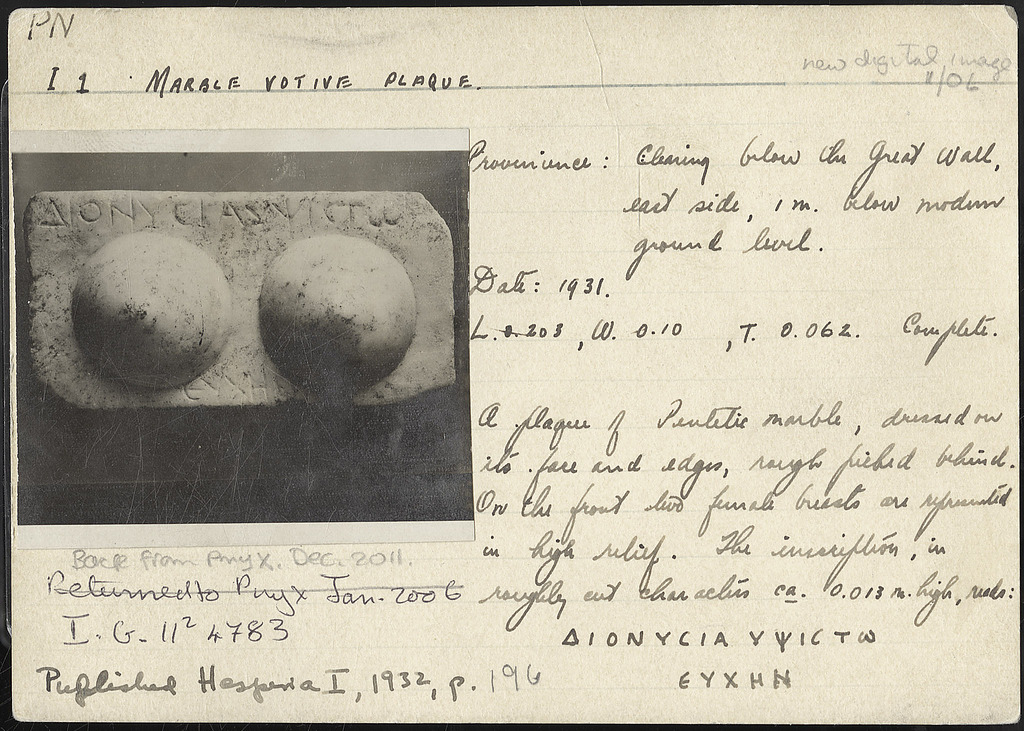 PN
new digital image
11/06
I 1 · MARBLE VOTIVE PLAQUE.
Provenience: Clearing below the Great Wall,
east side, 1 m. below modern
ground level.
Date: 1931.
L. 0.203, W. 0.10, T. 0.062. Complete.
A plaque of Pentelic marble, dressed on
its face and edges, rough picked behind.
On the front two female breasts are represented
in high relief. The inscription, in
roughly cut characters ca. 0.013 m. high, reads:
ΔΙΟΝΥCΙΑ ΥΨΙCΤω
ΕΥΧΗΝ
Back from Pnyx. Dec. 2011.
Returned to Pnyx Jan. 2006
I.G. II² 4783
Published Hesperia I, 1932, p. 196